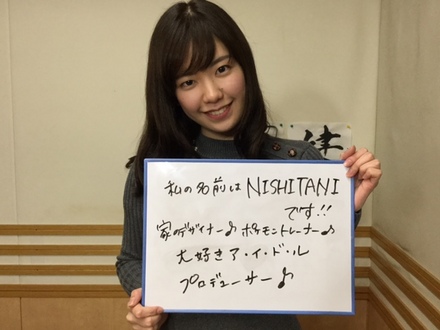 私の名前はNISHITANI
です!!
家のデザイナー♪ポケモントレーナー♪
大好きア・イ・ド・ル
プロデューサー♪
律